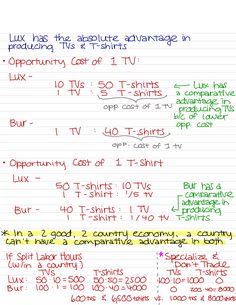 Lux has the absolute advantage in
producing TVs & T-shirts
• Opportunity Cost of 1 TV:
Lux -
10 TVs : 50 T-shirts
1 TV : 5 T-shirts
opp. cost of 1 TV
Lux has
a comparative
advantage in
producing TVs
b/c of lower
opp. cost
Bur -
1 TV : 40 T-shirts
opp cost of 1 TV
• Opportunity Cost of 1 T-Shirt
Lux -
50 T-shirts : 10 TVs
1 T-shirt : 1/5 TV
Bur -
40 T-shirts : 1 TV
1 T-shirt : 1/40 TV
Bur has a
comparative
advantage in
producing
T-shirts
* In a 2 good, 2 country economy, a country
can't have a comparative advantage in both
If Split Labor Hours
(w/in a country)
TVs T-shirts
Lux 50·10=500 50·50=2500
Bur 100·1=100 100·40=4000
* Specialize &
Don't Trade
TVs T-Shirts